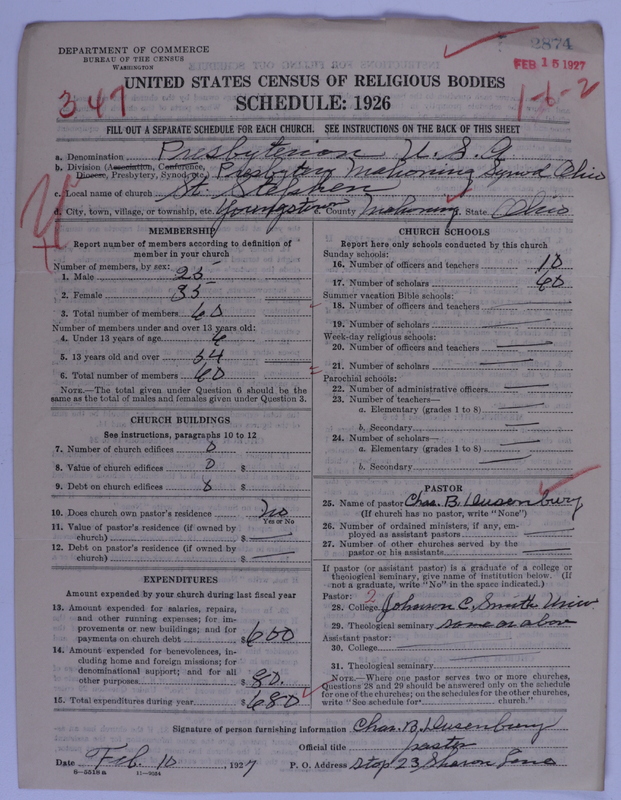 2874
DEPARTMENT OF COMMERCE
BUREAU OF THE CENSUS
WASHINGTON
FEB 15 1927
UNITED STATES CENSUS OF RELIGIOUS BODIES
347
SCHEDULE: 1926
1-6-2
FILL OUT A SEPARATE SCHEDULE FOR EACH CHURCH. SEE INSTRUCTIONS ON THE BACK OF THIS SHEET
a. Denomination Presbyterian U.S.A
b. Division (Association, Conference, Diocese, Presbytery, Synod, etc.) Presbytery Mahoning Synod Ohio
c. Local name of church St. Stephen
d. City, town, village, or township, etc. Youngstown County Mahoning State Ohio
MEMBERSHIP
Report number of members according to definition of
member in your church
Number of members, by sex:
1. Male 25
2. Female 35
3. Total number of members 60
Number of members under and over 13 years old:
4. Under 13 years of age 6
5. 13 years old and over 54
6. Total number of members 60
NOTE.—The total given under Question 6 should be the
same as the total of males and females given under Question 3.
CHURCH BUILDINGS
See instructions, paragraphs 10 to 12
7. Number of church edifices 0
8. Value of church edifices 0 $
9. Debt on church edifices 0 $
10. Does church own pastor's residence No
Yes or No
11. Value of pastor's residence (if owned by
church) $
12. Debt on pastor's residence (if owned by
church) $
EXPENDITURES
Amount expended by your church during last fiscal year
13. Amount expended for salaries, repairs,
and other running expenses; for im-
provements or new buildings; and for
payments on church debt $600
14. Amount expended for benevolences, in-
cluding home and foreign missions; for
denominational support; and for all
other purposes $80.
15. Total expenditures during year $680
CHURCH SCHOOLS
Report here only schools conducted by this church
Sunday schools:
16. Number of officers and teachers 10
17. Number of scholars 60
Summer vacation Bible schools:
18. Number of officers and teachers
19. Number of scholars
Week-day religious schools:
20. Number of officers and teachers
21. Number of scholars
Parochial schools:
22. Number of administrative officers
23. Number of teachers—
a. Elementary (grades 1 to 8)
b. Secondary
24. Number of scholars—
a. Elementary (grades 1 to 8)
b. Secondary
PASTOR
25. Name of pastor Chas. B. Dusenbury
(If church has no pastor, write "None")
26. Number of ordained ministers, if any, em-
ployed as assistant pastors
27. Number of other churches served by the
pastor or his assistants
If pastor (or assistant pastor) is a graduate of a college or
theological seminary, give name of institution below. (If
not a graduate, write "No" in the space indicated.)
Pastor: 2
28. College Johnson C. Smith Univ.
29. Theological seminary same as above
Assistant pastor:
30. College
31. Theological seminary
NOTE.—Where one pastor serves two or more churches,
Questions 28 and 29 should be answered only on the schedule
for one of the churches; on the schedules for the other churches,
write "See schedule for church."
Signature of person furnishing information Chas. B. Dusenbury
Official title pastor
Date Feb. 10, 1927 P. O. Address Stop 23 Sharon Line
8-5518a 11-9034